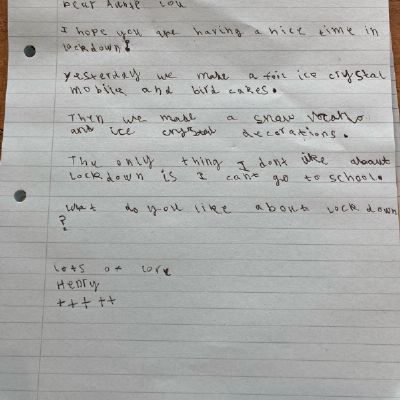 Dear Auntie Lou
I hope you are having a nice time in
lockdown!
Yesterday we make a foil ice crystal
mobile and bird cakes.
Then we made a snow
and ice crystal decorations.
The only thing I dont like about
lockdown is I cant go to school.
what do you like about lock down
?
lots of love
Henry
+++++